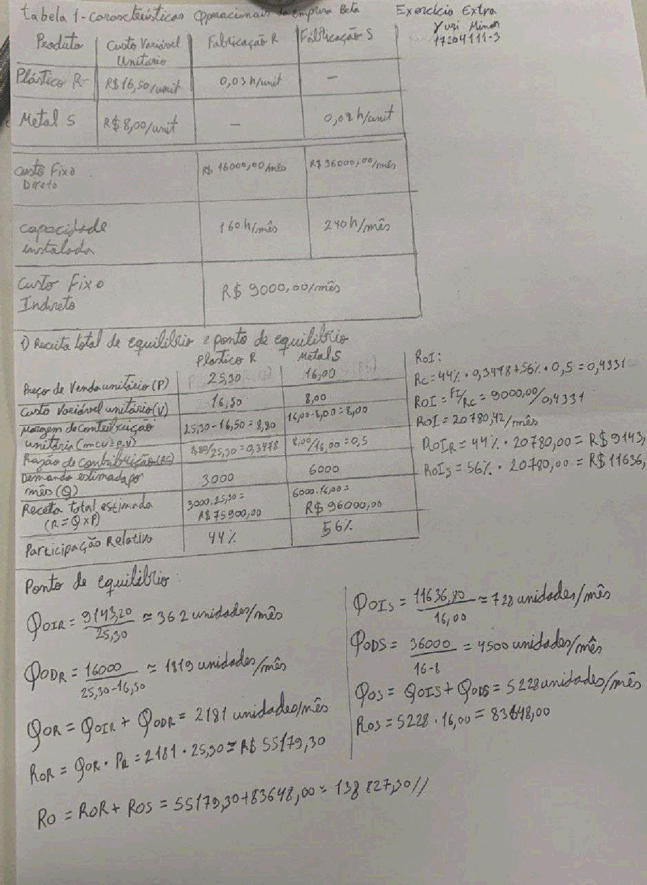 Tabela 1 - Características Operacionais da empresa Beta
Exercício Extra
Yuri
17204111-3
Produto Custo Variável Unitario Fabricação R Fabricação S
Plástico R R$ 16,50/unit 0,03h/unit -
Metal S R$ 8,00/unit - 0,02h/unit
Custo Fixo Direto R$ 16000,00/mês R$ 36000,00/mês
capacidade instalada 160h/mês 240h/mês
Custo Fixo Indireto R$ 9000,00/mês
1) Receita total de equilíbrio e ponto de equilíbrio
Plástico R Metal S
Preço de Venda unitário (P) 25,30 16,00
Custo Variável unitário (V) 16,50 8,00
Margem de contribuição unitária (mcu=p-v) 25,30-16,50=8,80 16,00-8,00=8,00
Razão de contribuição (RC) 8,80/25,30=0,3478 8,00/16,00=0,5
Demanda estimada por mês (Q) 3000 6000
Receita total estimada (R=QxP) 3000.25,30= R$ 75900,00 6000.16,00= R$ 96000,00
Participação Relativa 44% 56%
ROI:
Rc = 44% . 0,3478 + 56% . 0,5 = 0,4331
ROI = FI/RC = 9000,00/0,4331
ROI = 20780,42/mês
ROIR = 44% . 20780,00 = R$ 9143,
ROIS = 56% . 20780,00 = R$ 11636,
Ponto de equilíbrio:
QOIR = 9143,20/25,30 ≈ 362 unidades/mês
QODR = 16000/25,30-16,50 ≈ 1819 unidades/mês
QOR = QOIR + QODR = 2181 unidades/mês
ROR = QOR . PR = 2181 . 25,30 ≈ R$ 55179,30
QOIS = 11636,80/16,00 ≈ 728 unidades/mês
QODS = 36000/16-8 = 4500 unidades/mês
QOS = QOIS + QODS = 5228 unidades/mês
ROS = 5228 . 16,00 = 83648,00
RO = ROR + ROS = 55179,30+83648,00 = 138827,30//